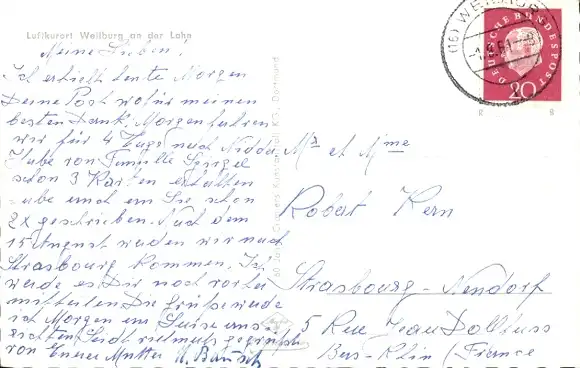 Luftkurort Weilburg an der Lahn
Meine Lieben!
Ich erhielt heute Morgen
Deine Post wofür meinen
besten Dank. Morgen fahren
wir für 4 Tage nach Nidda
Habe von Familie Spirgel
schon 3 Karten erhalten
habe auch an Sie schon
2x geschrieben. Nach dem
15 August werden wir nach
Strasbourg kommen. Ich
werde es Dir noch vorher
mitteilen Die Grüße werde
ich Morgen an Luise
Seid vielmals gegrüßt
von Eurer Mutter
Mr et Mme
Robert Kern
Strasbourg-Neudorf
5 Rue Jean Dollfuss
Bas-Rhin (France
(16) WEILBURG
DEUTSCHE BUNDESPOST
20
Dortmund